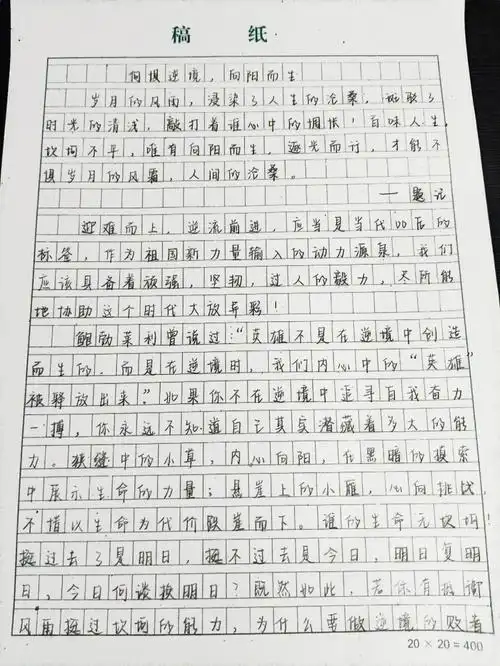 稿 纸
何惧逆境，向阳而生
岁月的风雨，浸染了人生的沧桑，斑驳了
时光的清浅，敲打着谁心中的惆怅！百味人生，
坎坷不平，唯有向阳而生，逐光而行，才能不
惧岁月的风霜，人间的沧桑。
——题记
迎难而上，逆流前进，应当是当代00后的
标签，作为祖国新力量输入的动力源泉，我们
应该具备着顽强，坚韧，过人的毅力，尽所能
地协助这个时代大放异彩！
鲍勃莱利曾说过："英雄不是在逆境中创造
而生的．而是在逆境时，我们内心中的"英雄"
被释放出来"．如果你不在逆境中追寻自我奋力
一搏，你永远不知道自己其实潜藏着多大的能
力。狭缝中的小草，内心向阳，在黑暗的摸索
中展示生命的力量；悬崖上的小雁，心向挑战，
不惜以生命为代价跌崖而下。谁的生命无坎坷！
挺过去了是明日，挺不过去是今日，明日复明
日，今日何谈换明日？既然如此，若你有抵御
风雨挺过坎坷的能力，为什么要做逆境的败者
20 × 20 = 400